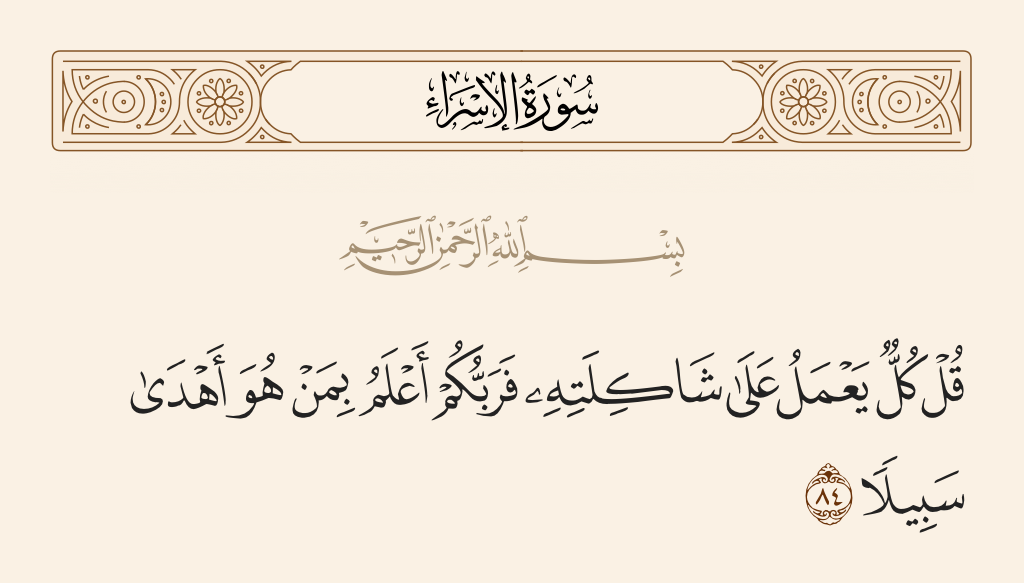 سُورَةُ الإِسْرَاءِ
بِسْمِ ٱللَّهِ ٱلرَّحْمَٰنِ ٱلرَّحِيمِ
قُلْ كُلٌّ يَعْمَلُ عَلَىٰ شَاكِلَتِهِۦ فَرَبُّكُمْ أَعْلَمُ بِمَنْ هُوَ أَهْدَىٰ
سَبِيلًا ٨٤